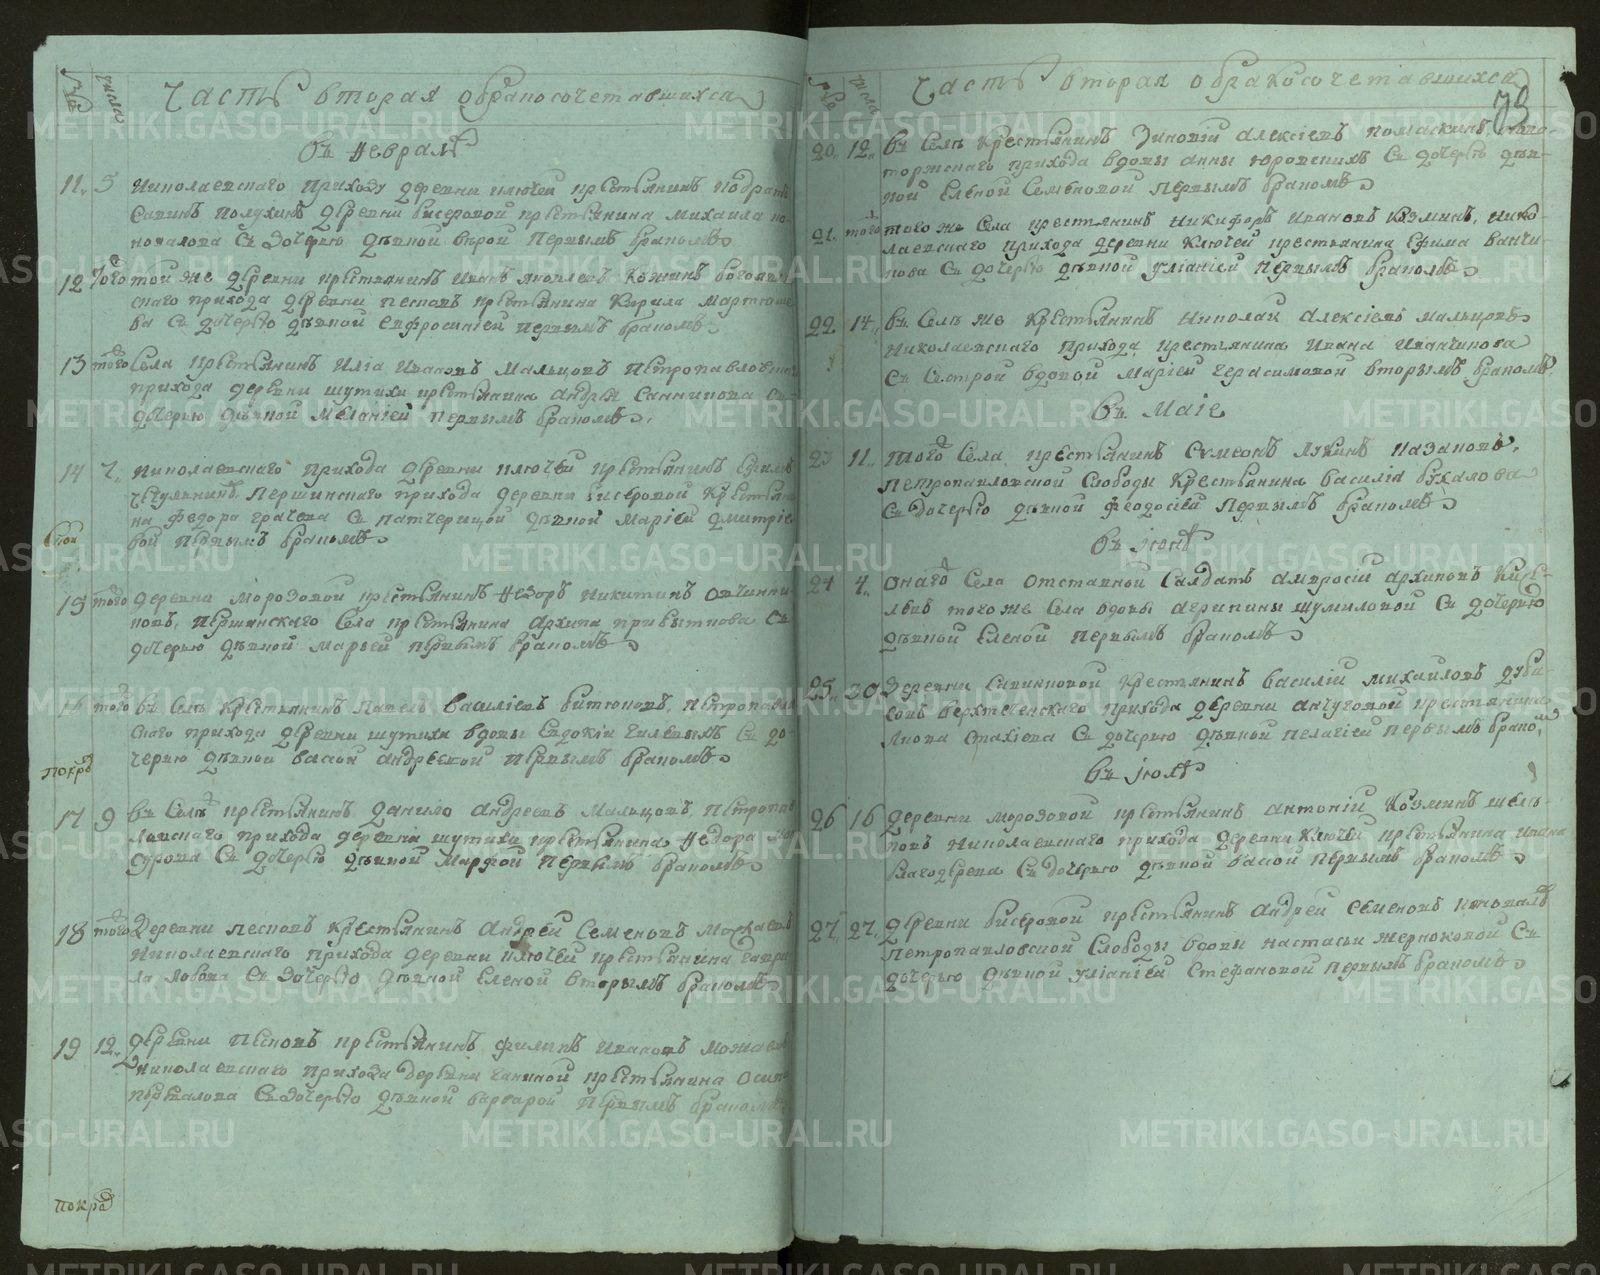 Часть вторая о бракосочетавшихся
Въ Февралѣ
11. 5 Николаевскаго приходу деревни Ключей крестьянинъ Кодратъ
Савинъ Полухинъ деревни Бисеровой крестьянина Михаила Ко-
новалова съ дочерью дѣвкой Вѣрой первымъ бракомъ
12 того той же деревни крестьянинъ Иванъ Яковлевъ Кожинъ Богоявлен-
скаго прихода деревни Песковъ крестьянина Кирила Мартюше-
ва съ дочерью дѣвкой Евфросиніей первымъ бракомъ
13 того Села крестьянинъ Иліа Ивановъ Мальцовъ Петропавловскаго
прихода деревни Шутихи крестьянина Андрея Санникова съ
дочерью дѣвкой Меланіей первымъ бракомъ.
14 7. Николаевскаго прихода деревни Ключей крестьянинъ Ефимъ
Першинскаго прихода деревни Бисеровой крестьяни-
на Федора Грачева съ патчерицой дѣвкой Маріей Дмитріе-
вой первымъ бракомъ
15 того деревни Морозовой крестьянинъ Федоръ Никитинъ Овчинни-
ковъ, Першинскаго села крестьянина Архипа Прибыткова съ
дочерью дѣвкой Марьей первымъ бракомъ
16 того въ Селѣ крестьянинъ Павелъ Василіевъ Битюковъ, Петропавлов-
скаго прихода деревни Шутихи вдовы Евдокіи Гилевыхъ съ до-
черью дѣвкой Васой Андреевой первымъ бракомъ
покров
17 9 въ Селѣ крестьянинъ Данило Андреевъ Мальцовъ, Петропав-
ловскаго прихода деревни Шутихи крестьянина Федора
съ дочерью дѣвкой Марфой первымъ бракомъ
18 того Деревни Песковъ крестьянинъ Андрей Семеновъ Можаевъ
Николаевскаго прихода деревни Ключей крестьянина Гаври-
ла Лобова съ дочерью дѣвкой Еленой вторымъ бракомъ
19 12. Деревни Песковъ крестьянинъ Филипъ Ивановъ Можаевъ
Николаевскаго прихода деревни Ганиной крестьянина Осипа
Первалова съ дочерью дѣвкой Варварой первымъ бракомъ
покров
Часть вторая о бракосочетавшихся
79
20. 12. въ Селѣ крестьянинъ Зиновій Алексіевъ Помаскинъ,
прихода вдовы Анны Юровскихъ съ дочерью дѣв-
кой Еленой Семеновой первымъ бракомъ
21. того того же села крестьянинъ Никифоръ Ивановъ Козминъ, Нико-
лаевскаго прихода деревни Ключей крестьянина Ефима Ванчи-
кова съ дочерью дѣвкой Уліаніей первымъ бракомъ
22 14. въ Селѣ же крестьянинъ Николай Алексіевъ Мальцовъ
Николаевскаго прихода крестьянина Ивана Иванчикова
съ сестрой вдовой Маріей Герасимовой вторымъ бракомъ.
Въ Маіе
23 11. того Села крестьянинъ Сумеонъ Лукинъ Казаковъ,
Петропавловской Слободы крестьянина Василія Бухалова
съ дочерью дѣвкой Феодосіей первымъ бракомъ
Въ Іюнѣ
24 4. онаго Села отставной салдатъ Амвросій Архиповъ
того же села вдовы Агрипины Шумиловой съ дочерью
дѣвкой Еленой первымъ бракомъ
25. 30 Деревни Савинковой крестьянинъ Василій Михайловъ Дуба-
совъ Верхтеченскаго прихода деревни Анчуговой крестьянина
съ дочерью дѣвкой Пелагіей первымъ бракомъ
Въ Іюлѣ
26 16 Деревни Морозовой крестьянинъ Антоній Козминъ Шель-
ковъ Николаевскаго прихода деревни Ключей крестьянина Ивана
съ дочерью дѣвкой Васой первымъ бракомъ
27. 27. Деревни Бисеровой крестьянинъ Андрей Семеновъ Коновалов
Петропавловской Слободы вдовы Настасьи Жерноковой съ
дочерью дѣвкой Уліаніей Стефановой первымъ бракомъ